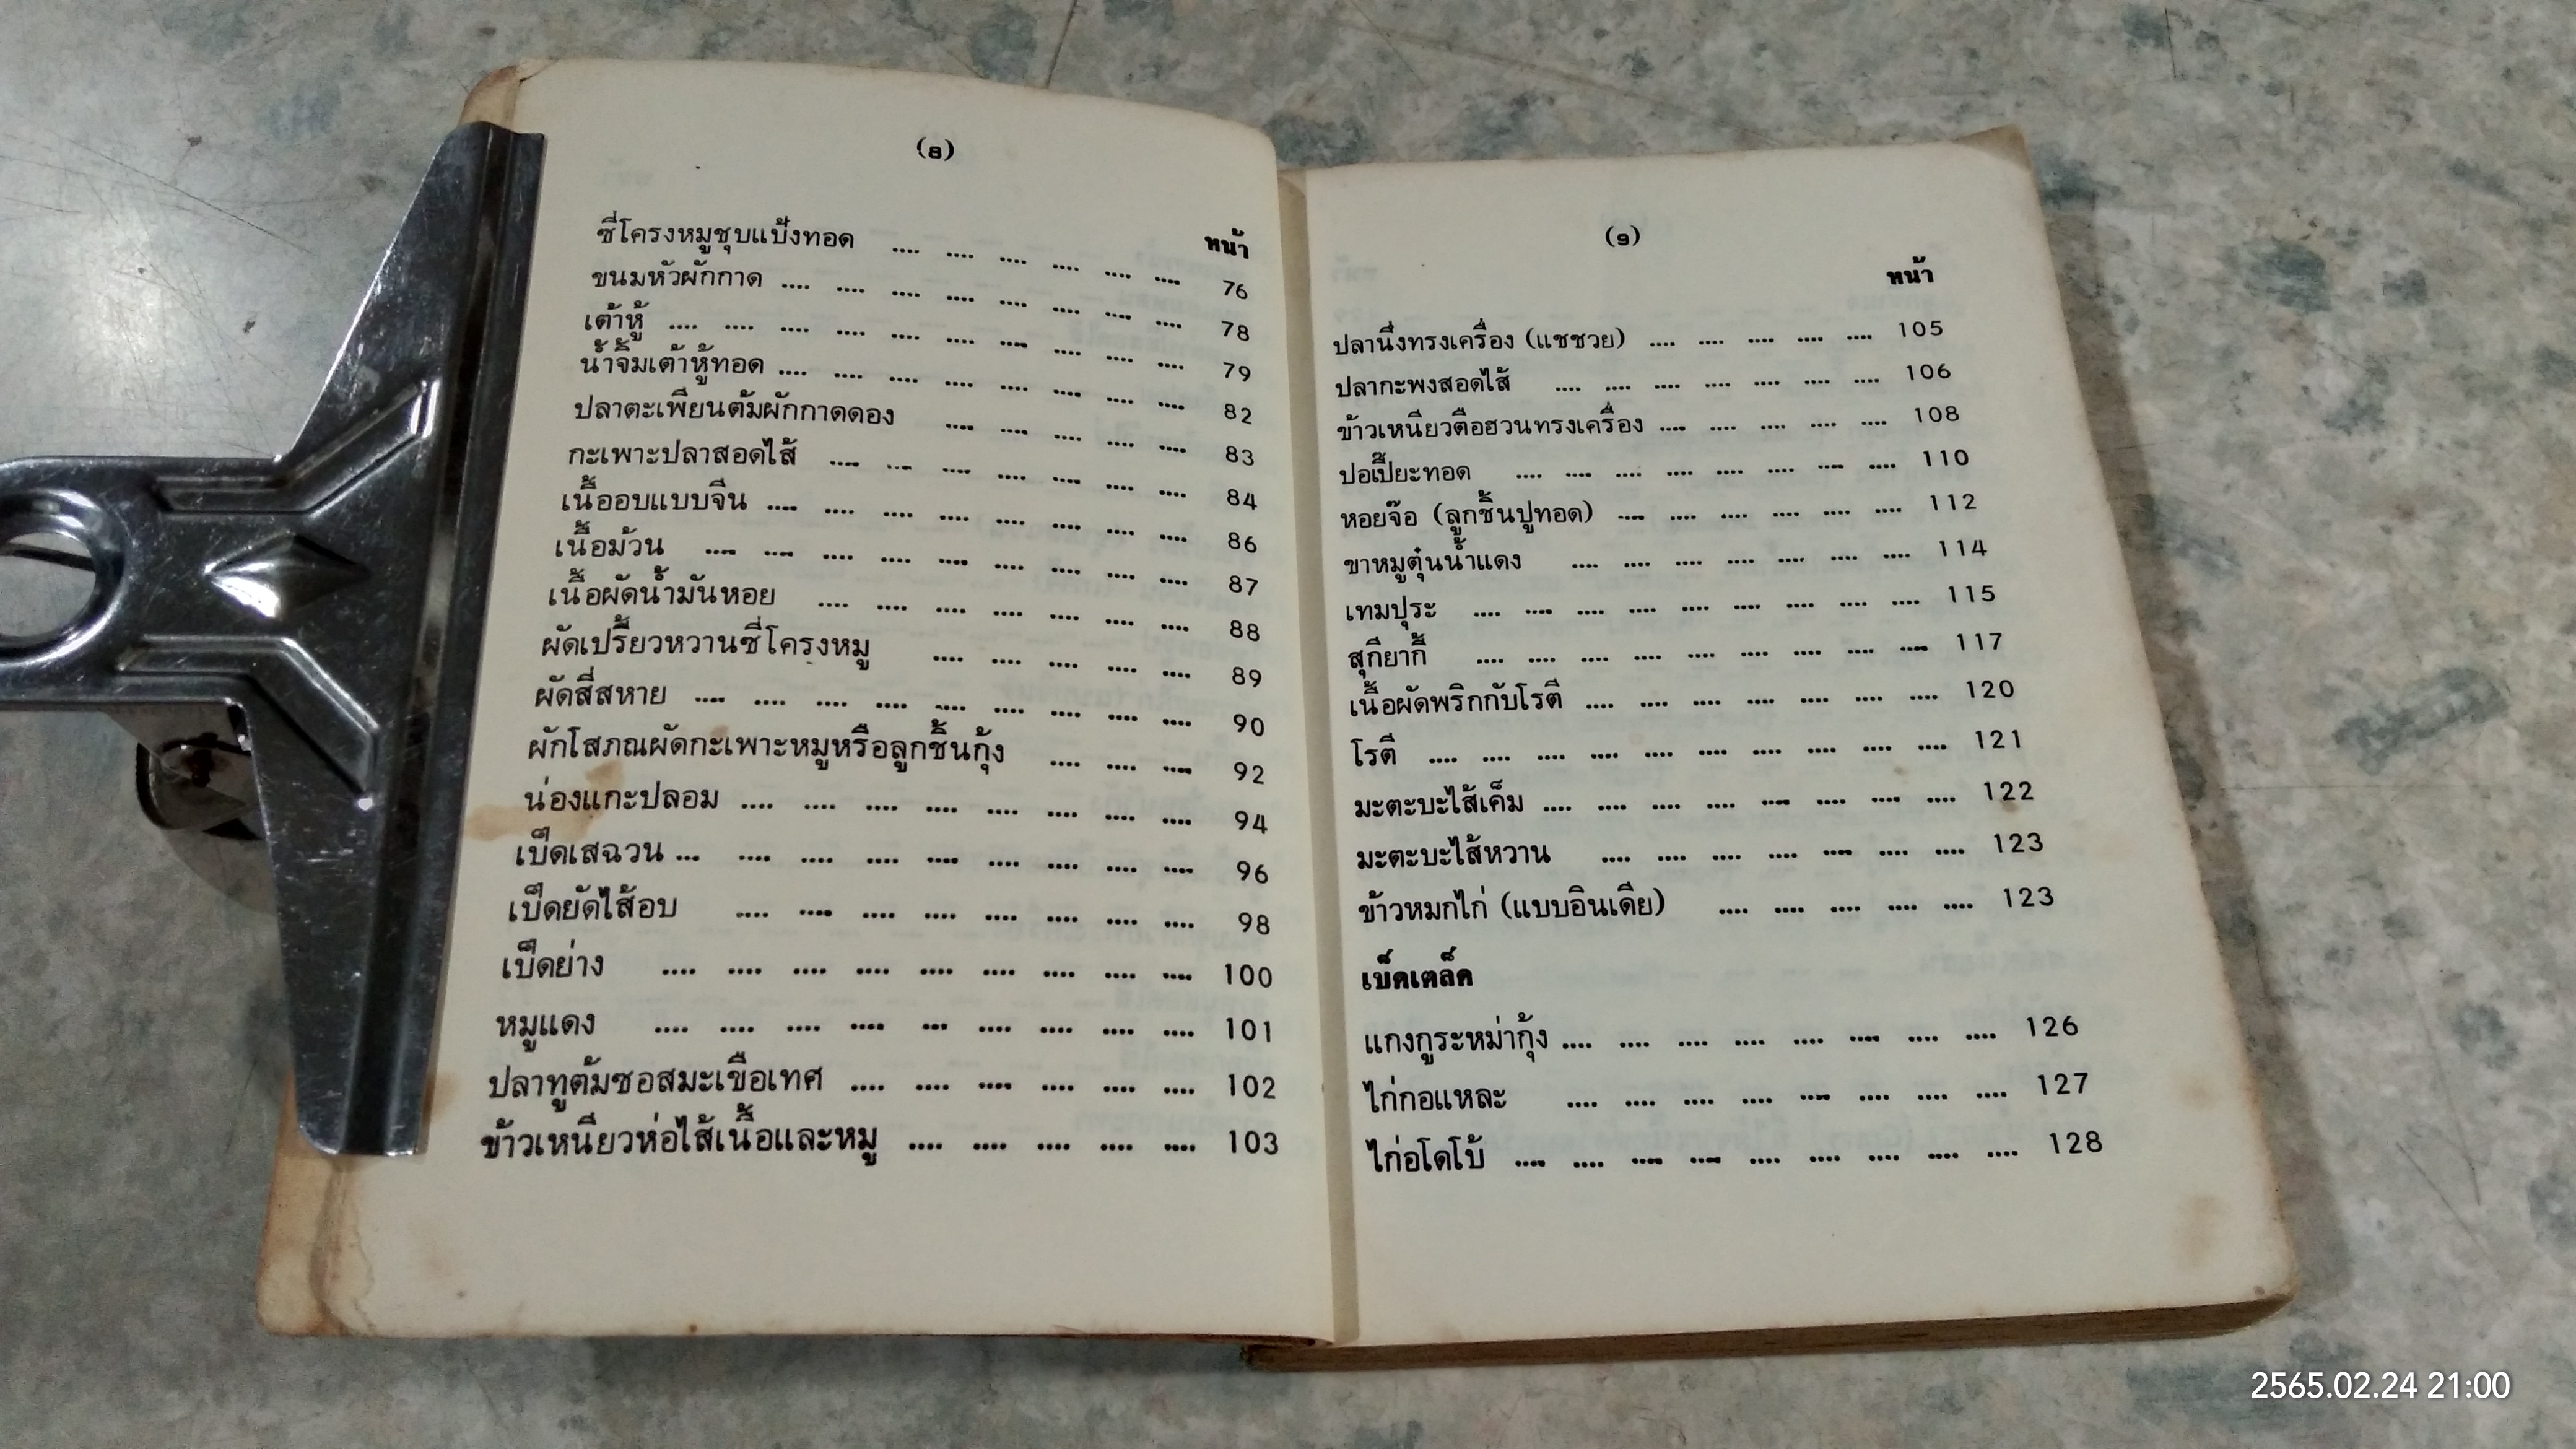 (8)
หน้า
ซี่โครงหมูชุบแป้งทอด .... .... .... .... .... .... 76
ขนมหัวผักกาด .... .... .... .... .... .... .... .... 78
เต้าหู้ .... .... .... .... .... .... .... .... .... .... 79
น้ำจิ้มเต้าหู้ทอด .... .... .... .... .... .... .... .... 82
ปลาตะเพียนต้มผักกาดดอง .... .... .... .... .... 83
กะเพาะปลาสอดไส้ .... .... .... .... .... .... .... 84
เนื้ออบแบบจีน .... .... .... .... .... .... .... .... 86
เนื้อม้วน .... .... .... .... .... .... .... .... .... 87
เนื้อผัดน้ำมันหอย .... .... .... .... .... .... .... 88
ผัดเปรี้ยวหวานซี่โครงหมู .... .... .... .... .... 89
ผัดสี่สหาย .... .... .... .... .... .... .... .... .... 90
ผักโสภณผัดกะเพาะหมูหรือลูกชิ้นกุ้ง .... .... .... 92
น่องแกะปลอม .... .... .... .... .... .... .... .... 94
เป็ดเสฉวน ... .... .... .... .... .... .... .... .... 96
เป็ดยัดไส้อบ .... .... .... .... .... .... .... .... 98
เป็ดย่าง .... .... .... .... .... .... .... .... .... 100
หมูแดง .... .... .... .... ... .... .... .... .... 101
ปลาทูต้มซอสมะเขือเทศ .... .... .... .... .... .... 102
ข้าวเหนียวห่อไส้เนื้อและหมู .... .... .... .... .... 103
(9)
หน้า
ปลานึ่งทรงเครื่อง (แชชวย) .... .... .... .... .... 105
ปลากะพงสอดไส้ .... .... .... .... .... .... .... 106
ข้าวเหนียวตือฮวนทรงเครื่อง .... .... .... .... .... 108
ปอเปี๊ยะทอด .... .... .... .... .... .... .... .... 110
หอยจ๊อ (ลูกชิ้นปูทอด) .... .... .... .... .... .... 112
ขาหมูตุ๋นน้ำแดง .... .... .... .... .... .... .... 114
เทมปุระ .... .... .... .... .... .... .... .... .... 115
สุกียากี้ .... .... .... .... .... .... .... .... .... 117
เนื้อผัดพริกกับโรตี .... .... .... .... .... .... .... 120
โรตี .... .... .... .... .... .... .... .... .... .... 121
มะตะบะไส้เค็ม .... .... .... .... .... .... .... .... 122
มะตะบะไส้หวาน .... .... .... .... .... .... .... 123
ข้าวหมกไก่ (แบบอินเดีย) .... .... .... .... .... 123
เบ็ดเตล็ด
แกงกูระหม่ากุ้ง .... .... .... .... .... .... .... .... 126
ไก่กอแหละ .... .... .... .... .... .... .... .... 127
ไก่อโดโบ้ .... .... .... .... .... .... .... .... .... 128
2565.02.24 21:00